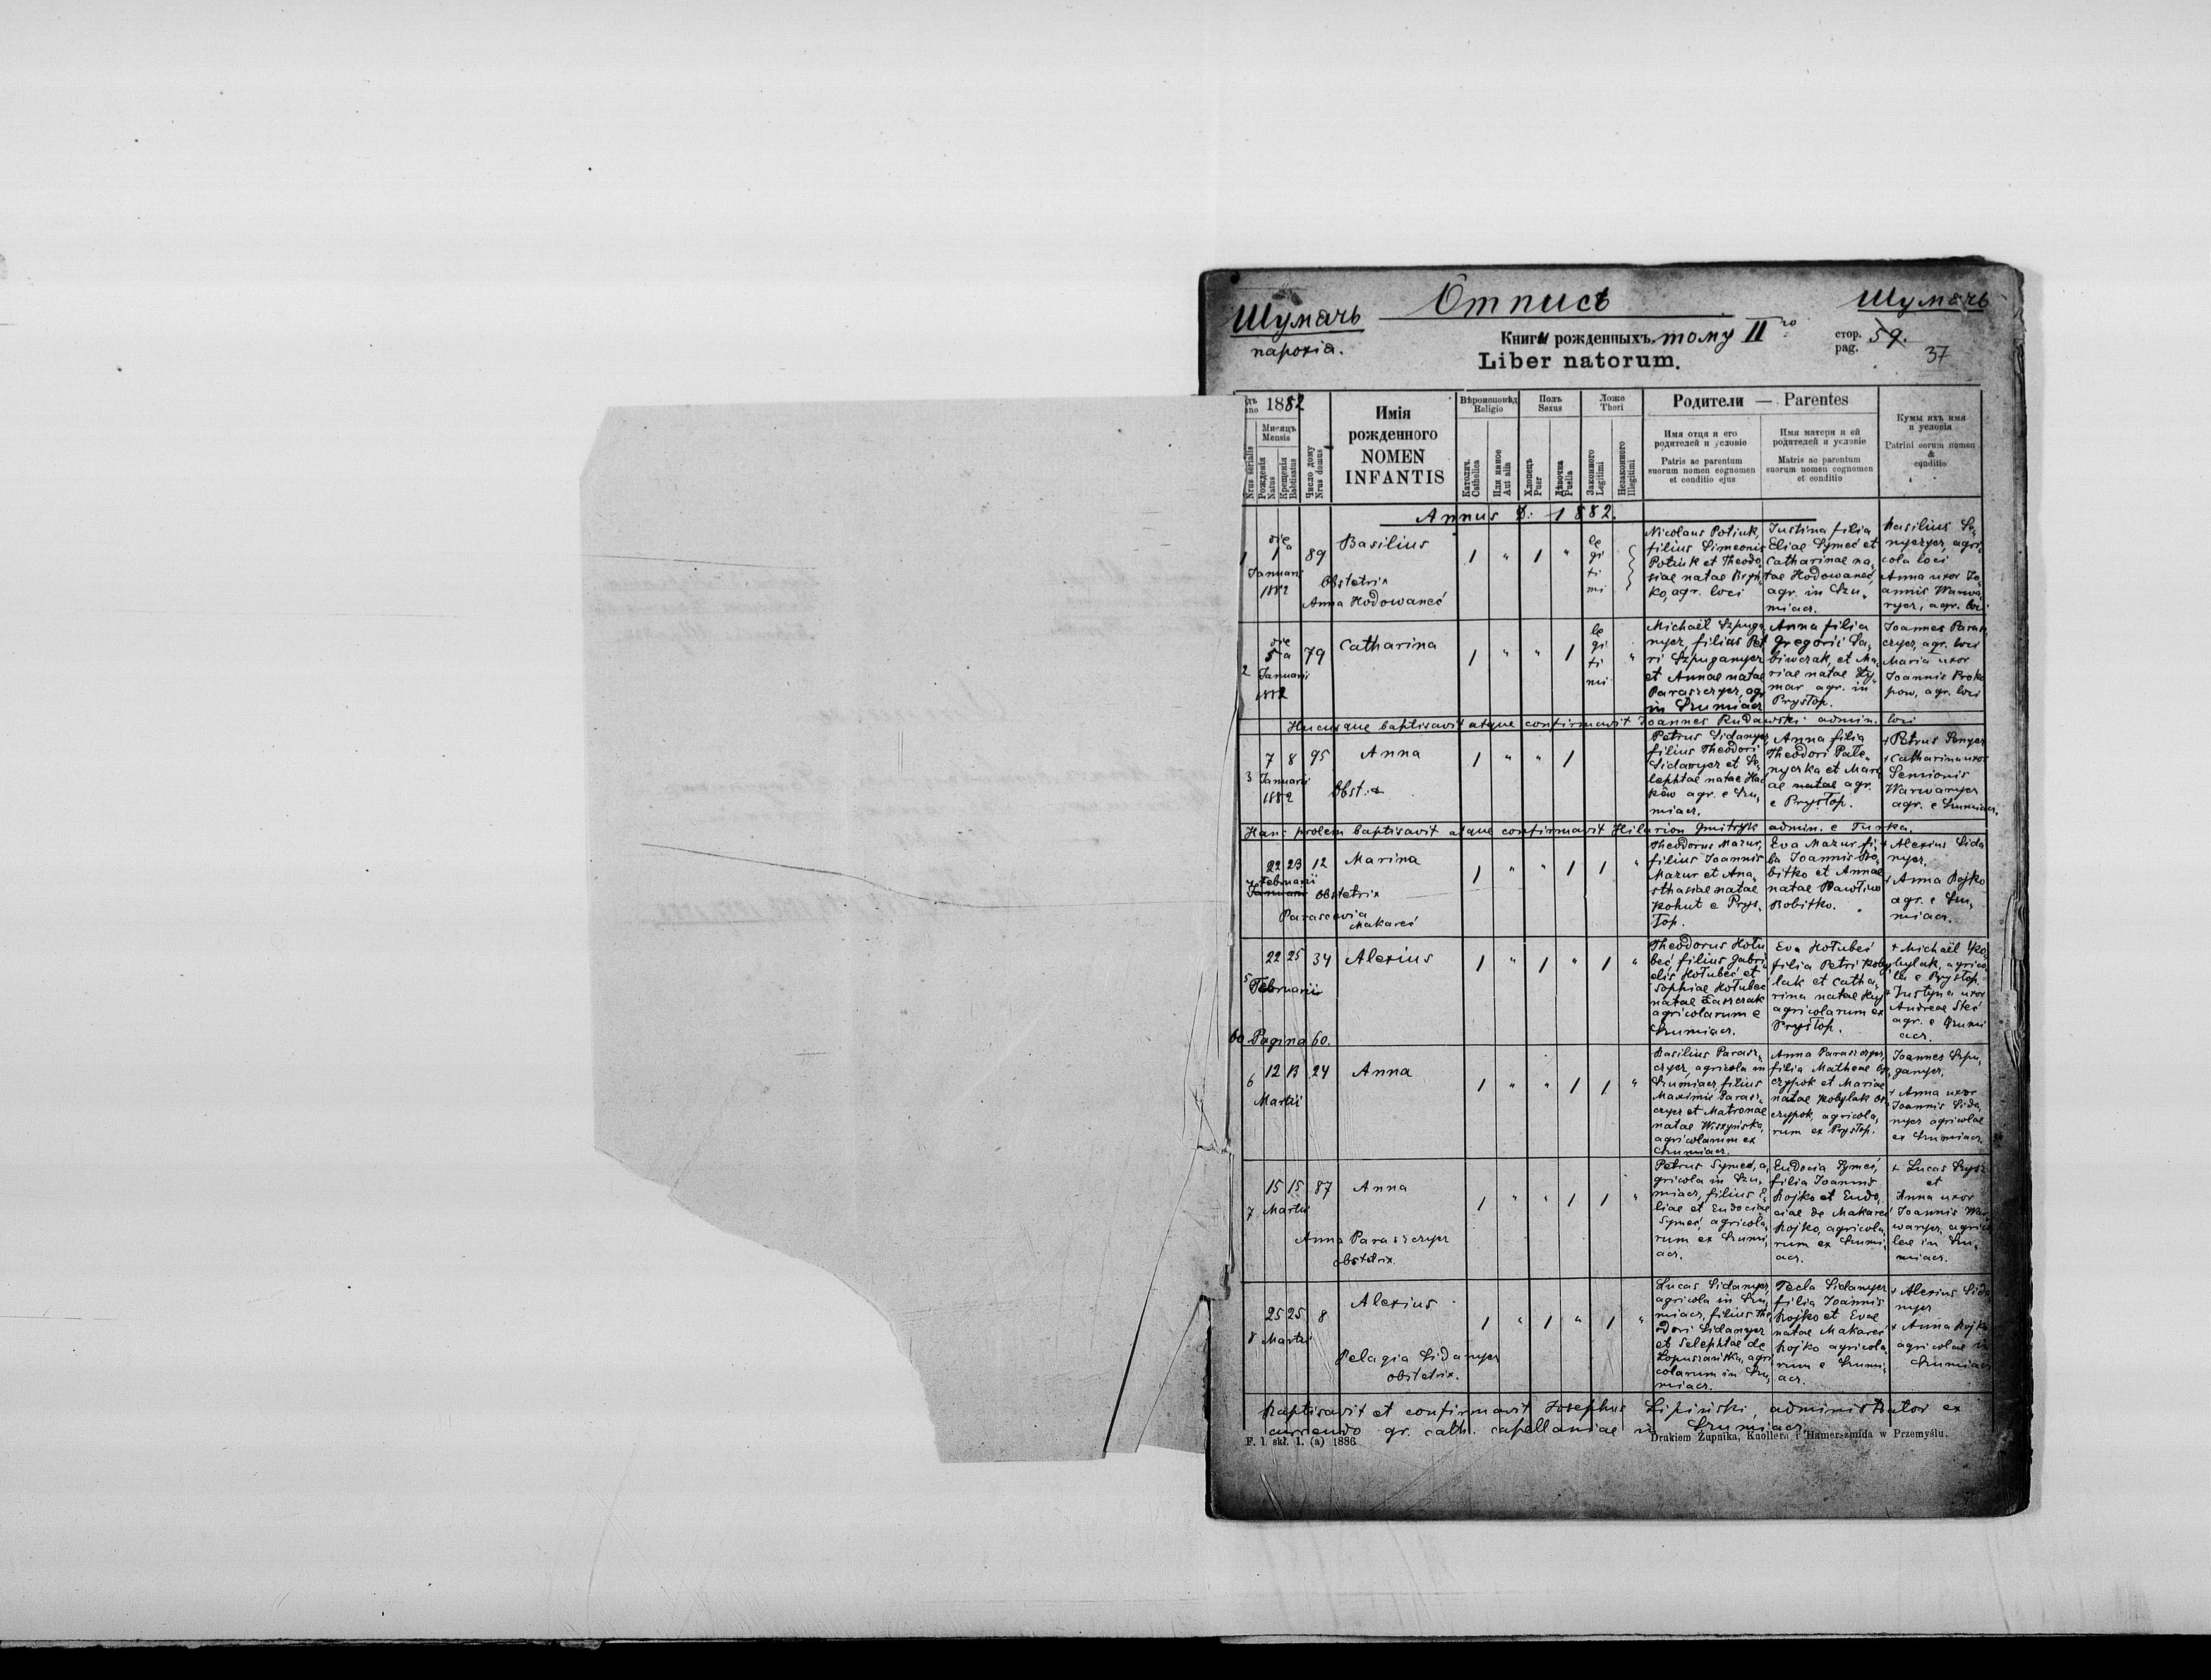 Шумячь
парохія.
Отпись
Шумячь
Книгы рожденныхъ. тому II го
Liber natorum.
стор. 59.
pag.
37
1882
Мнсяцъ
Mensis
Nrus serialis
Рожденія
Natus
Крещенія
Babtisatus
Число дому
Nrus domus
Имія
рожденного
NOMEN
INFANTIS
Вѣроисповѣд
Religio
Католич.
Catholica
Или иное
Aut alia
Полъ
Sexus
Хлопецъ
Puer
Дѣвочка
Puella
Ложе
Thori
Законного
Legitimi
Незаконного
Illegitimi
Родители — Parentes
Имя отця и его
родителей и условіе
Patris ac parentum
suorum nomen cognomen
et conditio ejus
Имя матери и ей
родителей и условіе
Matris ac parentum
suorum nomen cognomen
et conditio
Кумы ихъ имя
и условія
Patrini eorum nomen
&
conditio
Annus D: 1882.
1
die
1 a
Januarii
1882
89
Basilius
Obstetrix
Anna Hodowaneć
1 " 1 "
le
gi
ti
mi
Nicolaus Potiuk,
filius Simeonis
Potiuk et Theodo
siae natae
ko, agr. loci
Justina filia
Eliae Symeć et
Catharinae na,
tae Hodowaneć,
agr. in Szu,
miacz.
Basilius Se,
nyczycz, agri,
cola loci
Anna uxor Jo,
annis Warwa,
rycz, agr. loci
2
die
5 a
Januarii
1882
79
Catharina
1 " " 1
le
gi
ti
mi
"
Michaël Szpuga
nycz, filius Pet
ri Szpuganycz
et Annae natae
Paraszczycz, agr
in Szumiacz
Anna filia
Gregorii Sa,
biwczak, et Ma,
riae natae Hy,
mar agr. in
Prysłop.
Joannes Parasz
czycz, agr. loci
Maria uxor
Joannis Proko
pow, agr. loci
Hucusque baptisavit atque confirmavit Joannes Rudawski admin. loci
3
7 8
Januarii
1882
95
Anna
Obst:
1 " " 1
Petrus Sidanycz,
filius Theodori
Sidanycz et Se,
lephtae natae Hac
ków agr. e Szu,
miacz.
Anna filia
Theodori Pale,
nyczka et Mari
ae natae agr.
e Prysłop.
+ Petrus Senycz
+ Catharina uxor
Semionis
Warwanycz
agr. e Szumiacz.
Hanc prolem baptisavit atque confirmavit Hilarion Gmitryk admin. e Turka.
4
22 23
Februarii
Januarii
12
Marina
Obstetrix
Parascevia
Makareć
1 " " 1 1 "
Theodorus Mazur,
filius Joannis
Mazur et Ana,
sthasiae natae
Kohut e Prys,
łop.
Eva Mazur fi,
lia Joannis Bo,
bitko et Annae
natae Pawliw
Bobitko.
+ Alexius Sida
nycz,
+ Anna Rojko
agr. e Szu,
miacz.
5
22 25
Februarii
34
Alexius
1 " 1 " 1 "
Theodorus Hołu
beć, filius Gabri
elis Hołubeć et
Sophiae Hołubeć
natae Łaszczak
agricolarum e
Szumiacz.
Eva Hołubeć
filia Petri Koby,
lak et Catha,
rina natae Huj
agricolarum ex
Prysłop.
+ Michaël Ko,
bylak, agrico
la e Prysłop
+ Justyna uxor
Andreae Steć
agr. e Szumi
acz.
60 Pagina 60.
6
12 13
Martii
24
Anna
1 " " 1 1 "
Basilius Parasz,
czycz, agricola in
Szumiacz, filius
Maximi Parasz,
czycz et Matronae
natae Wiszyńska,
agricolarum ex
Szumiacz.
Anna Paraszczycz,
filia Matheae Os,
czypok et Mariae
natae Kobylak Os
czypok, agricola,
rum ex Prysłop.
Joannes Szpu,
ganycz,
+ Anna uxor
Joannis Sida,
nycz agricolae
ex Szumiacz
7
15 15
Martii
87
Anna
Anna Paraszczycz
obstetrix.
1 " " 1 1 "
Petrus Symeć, a,
gricola in Szu,
miacz, filius E,
liae et Eudociae
Symeć, agricola,
rum ex Szumi,
acz.
Eudocia Symeć,
filia Joannis
Rojko et Eudo,
ciae de Makareć
Rojko, agricola,
rum ex Szumi,
acz.
+ Lucas Szysz
et
Anna uxor
Joannis War,
warycz, agrico
lae in Szu,
miacz.
8
25 25
Martii
8
Alexius
Pelagia Sidanycz
obstetrix.
1 " 1 " 1 "
Lucas Sidanycz,
agricola in Szu,
miacz, filius The
odori Sidanycz
et Selephtae de
Łopuszańska, agri
colarum in Szu,
miacz.
Tecla Sidanycz
filia Joannis
Rojko et Evae
natae Makareć
Rojko agricola,
rum e Szumi,
acz.
+ Alexius Sida
nycz
+ Anna Rojko
agricolae in
Szumiacz
Baptisavit et confirmavit Josephus Lipiński, administrator ex
currendo gr. cath. capellaniae in Szumiacz.
F. l. skł. 1. (a) 1886
Drukiem Żupnika, Knollera i Hamerszmida w Przemyślu.